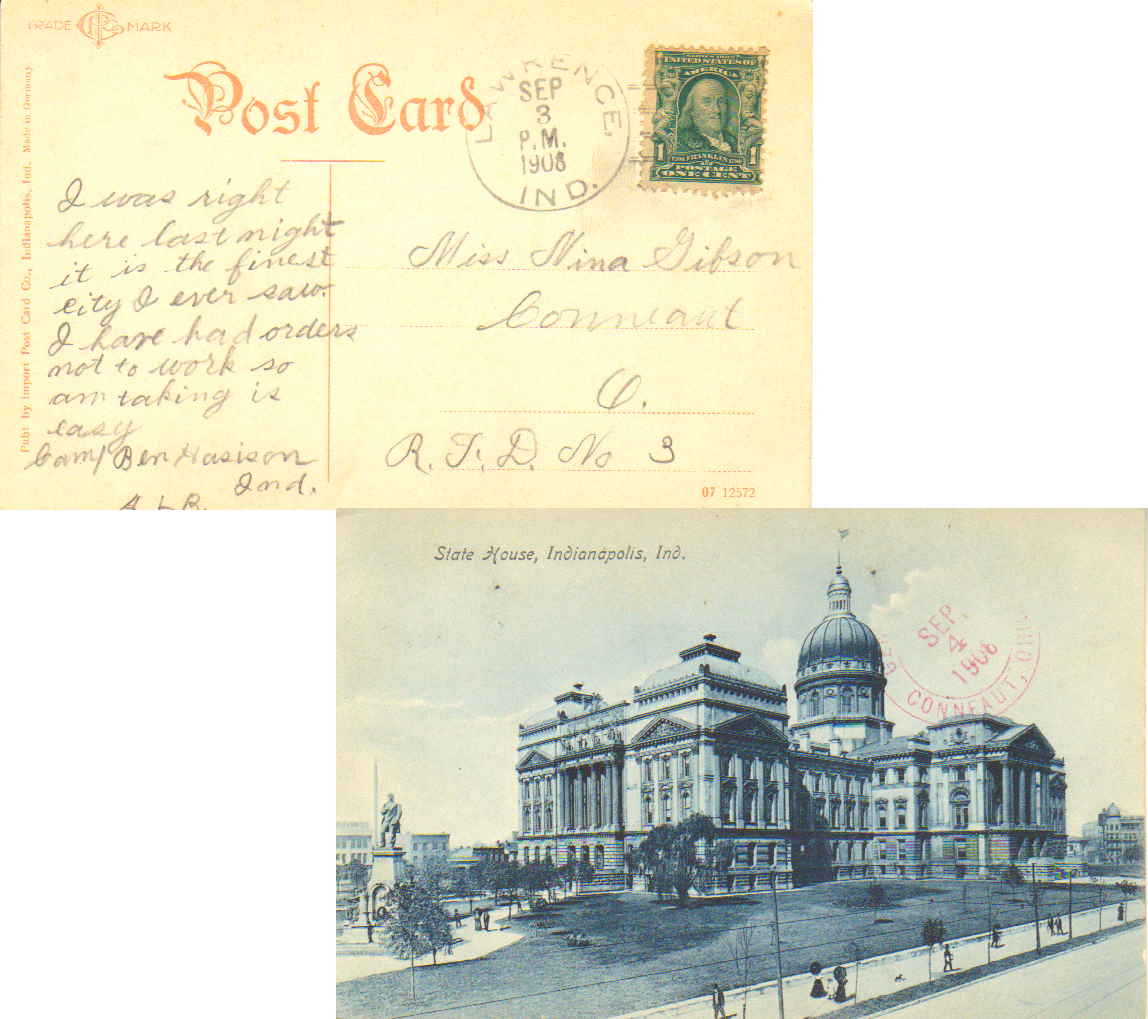 TRADE MARK
Post Card
LAWRENCE,
SEP
3
P.M.
1908
IND.
UNITED STATES OF
AMERICA
1706 FRANKLIN 1790
1 1
POSTAGE
ONE CENT
Publ by Import Post Card Co., Indianapolis, Ind. Made in Germany.
I was right
here last night
it is the finest
city I ever saw.
I have had orders
not to work so
am taking is
easy
Camp Ben Hasison
Ind.
A L R.
Miss Nina Gibson
Conneaut
O.
R. F. D. No 3
07 12572
State House, Indianapolis, Ind.
SEP.
4
1908
CONNEAUT, OHIO